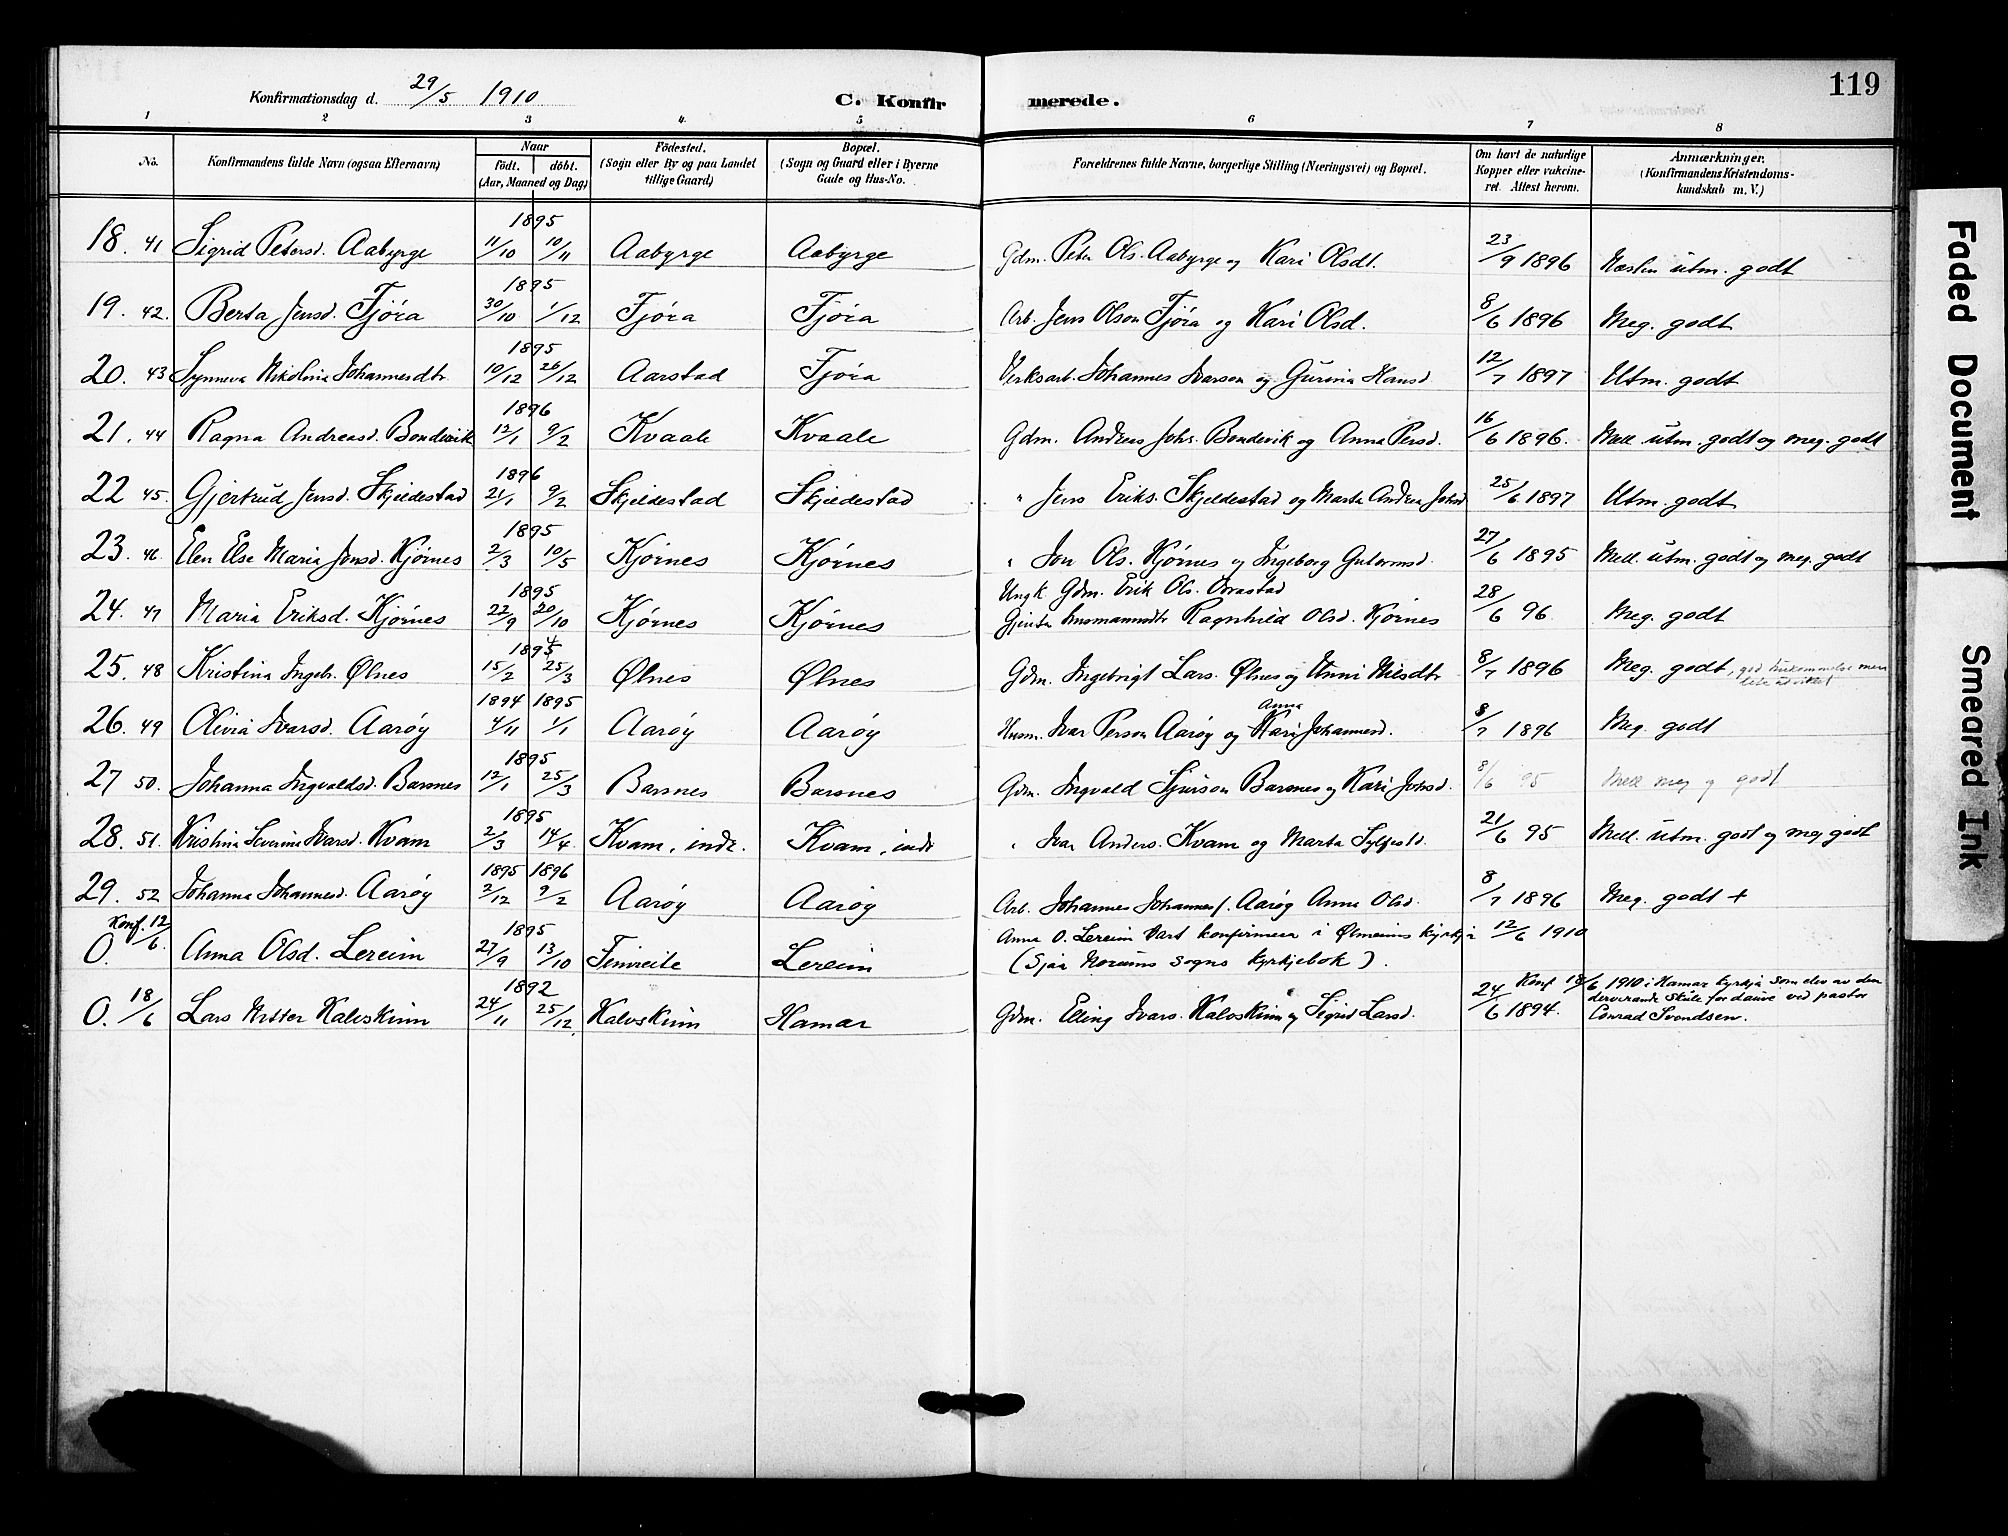 119
Konfirmationsdag d. 29/5 1910
C. Konfirmerede.
1 2 3 4. 5 6 7 8
No. Konfirmandens fulde Navn (ogsaa Efternavn) Naar født. døbt. (Aar, Maaned og Dag) Fødested. (Sogn eller By og paa Landet tillige Gaard) Bopæl. (Sogn og Gaard eller i Byerne Gade og Hus-No. Forældrenes fulde Navne, borgerlige Stilling (Næringsvei) og Bopæl. Om havt de naturlige Kopper eller vakcineret. Attest herom. Anmærkninger. (Konfirmandens Kristendomskundskab m. V.)
1895
18. 41 Sigrid Petersd. Aabyrge 11/10 10/11 Aabyrge Aabyrge Gdm. Peter Ols. Aabyrge og Kari Olsdt. 23/9 1896 Næsten utm. godt
1895
19. 42. Berta Jensd. Fjöra 30/10 1/12 Fjöra Fjöra Arb. Jens Olson Fjöra og Kari Olsd. 8/6 1896 Meg. godt
1895
20. 43 Synneva Nikolina Johannesdtr. 10/12 26/12 Aarstad Fjöra Verksarb. Johannes Ivarson og Gurina Hansd. 12/7 1897 Utm. godt
1896
21. 44 Ragna Andreasd. Bondevik 12/1 9/2 Kvaale Kvaale Gdm. Andreas Johs. Bondevik og Anna Persd. 16/6 1896. Mell. utm. godt og meg. godt
1896
22 45. Gjertrud Jensd. Skjeldestad 21/1 9/2 Skjeldestad Skjeldestad " Jens Eriks. Skjeldestad og Marta Andrea Johsd 25/6 1897 Utm. godt
1895
23. 46. Elen Else Maria Jonsd. Kjørnes 2/3 10/5 Kjørnes Kjørnes " Jon Ols. Kjørnes og Ingeborg Gutormsd. 27/6 1895 Mell. utm. godt og meg. godt
1895 Ungk. Gdm. Erik Ols.
24. 47 Maria Eriksd. Kjørnes 22/9 20/10 Kjørnes Kjørnes Gjenta husmannsdtr Ragnhild Olsd. Kjørnes 28/6 96 Meg. godt
25. 48 Kristina Ingebr. Ølnes 15/2 25/3 Ølnes Ølnes Gdm. Ingebrigt Lars. Ølnes og Unni Nilsdtr 8/7 1896 Meg. godt, god hukommelse men
1894 1895 Anna
26. 49 Olivia Ivarsd. Aarøy 4/11 1/1 Aarøy Aarøy Husm. Ivar Person Aarøy og Kari Johannesd. 8/7 1896 Meg. godt
1895
27 50. Johanna Ingvaldsd. Barsnes 12/1 25/3 Barsnes Barsnes Gdm. Ingvald Sjurson Barsnes og Kari Johsd. 8/6 95 Mell meg og godt
1895
28. 51. Kristina Severine Ivarsd. Kvam 2/3 14/4 Kvam, indr. Kvam, indr " Ivar Anders. Kvam og Marta Sylfestd. 21/6 95 Mell. utm. godt og meg godt
1895 1896
29. 52 Johanna Johannesd. Aarøy 2/12 9/2 Aarøy Aarøy Arb. Johannes Johannesf. Aarøy Anna Olsd. 8/7 1896 Meg. godt +
Konf. 12/6. 1895 Anna O. Lereim vart konfirmera i Ølmeims kyrkja 12/6 1910
0. Anna Olsd. Lereim 27/9 13/10 Fimreite Lereim (Sjaa Norums sogns kyrkjebok).
1892 Konf 18/6 1910 i Hamar kyrkja som elev av den
0. 18/6 Lars Mitter Kalvskinn 24/11 25/12. Kalvskinn Hamar Gdm. Elling Ivars. Kalvskinn og Sigrid Larsd. 24/6 1894. derverande skule for dauve ved pastor
Conrad Svendsen.
Faded Document
Smeared Ink